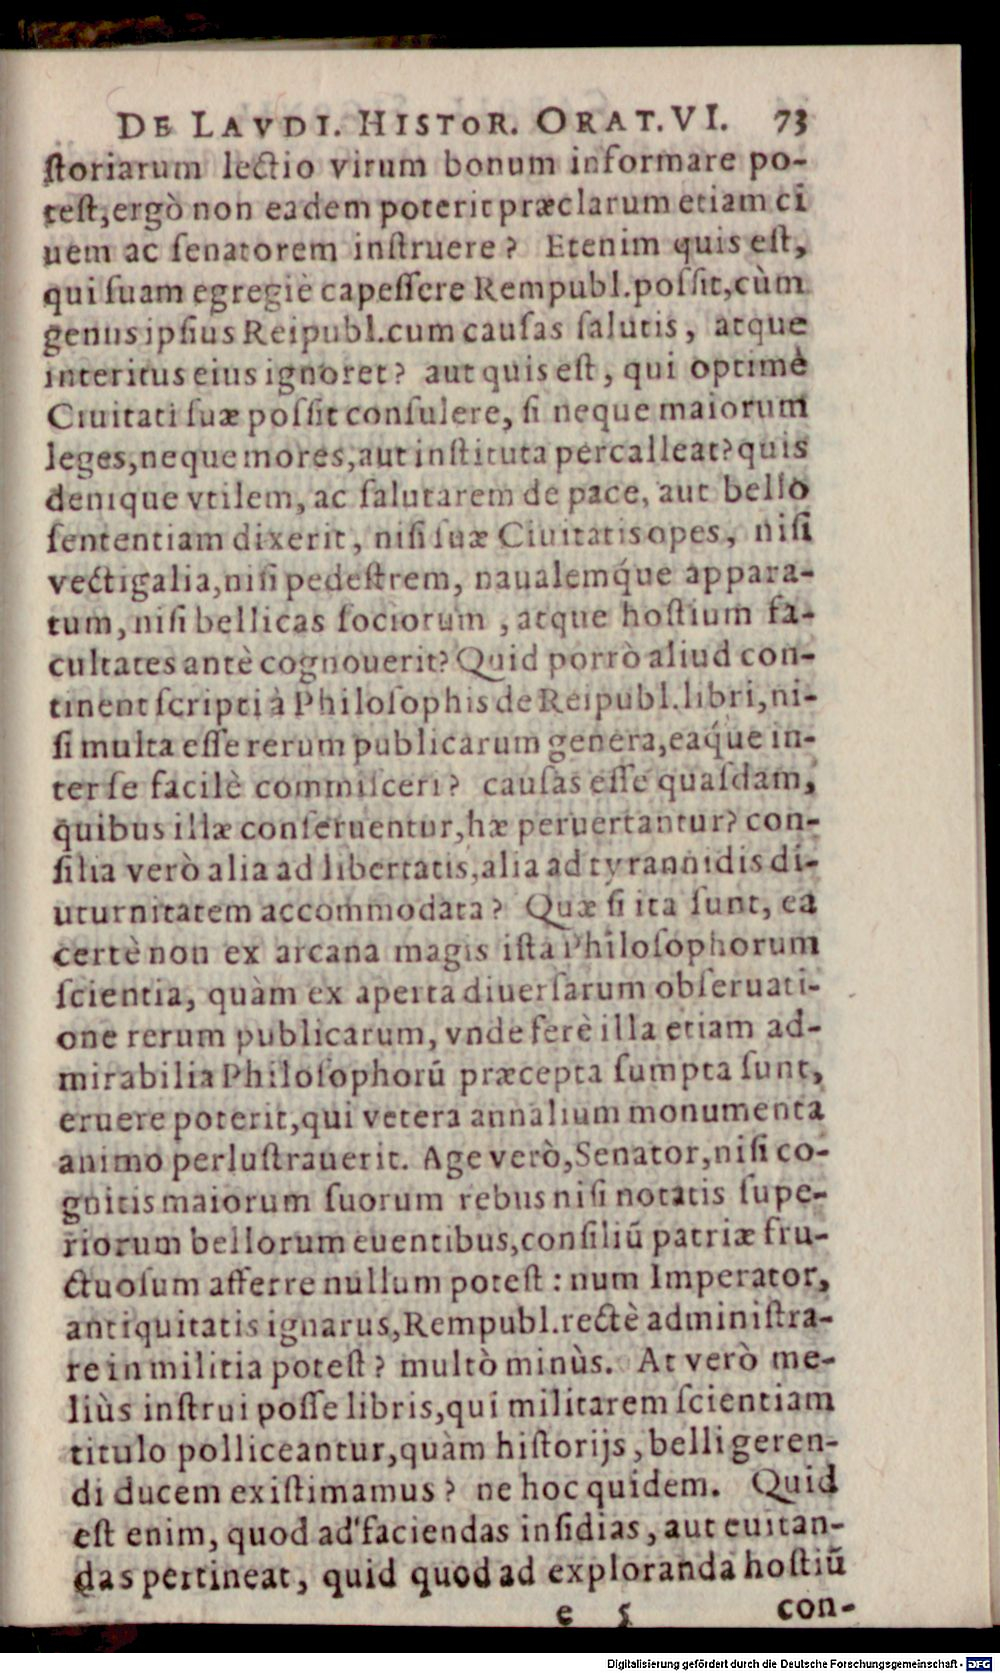 DE LAVDI. HISTOR. ORAT. VI. 73
ſtoriarum lectio virum bonum informare po-
teſt, ergò non eadem poterit præclarum etiam ci
uem ac ſenatorem inſtruere? Etenim quis eſt,
qui ſuam egregiè capeſſere Rempubl. poſſit, cùm
genus ipſius Reipubl. cum cauſas ſalutis, atque
interitus eius ignoret? aut quis eſt, qui optimè
Ciuitati ſuæ poſſit conſulere, ſi neque maiorum
leges, neque mores, aut inſtituta percalleat? quis
denique vtilem, ac ſalutarem de pace, aut bello
ſententiam dixerit, niſi ſuæ Ciuitatis opes, niſi
vectigalia, niſi pedeſtrem, naualemq́ue appara-
tum, niſi bellicas ſociorum, atque hoſtium fa-
cultates antè cognouerit? Quid porrò aliud con-
tinent ſcripti à Philoſophis de Reipubl. libri, ni-
ſi multa eſſe rerum publicarum genera, eaq́ue in-
ter ſe facilè commiſceri? cauſas eſſe quaſdam,
quibus illæ conſeruentur, hæ peruertantur? con-
ſilia verò alia ad libertatis, alia ad tyrannidis di-
uturnitatem accommodata? Quæ ſi ita ſunt, ea
certè non ex arcana magis iſta Philoſophorum
ſcientia, quàm ex aperta diuerſarum obſeruati-
one rerum publicarum, vnde ferè illa etiam ad-
mirabilia Philoſophorū præcepta ſumpta ſunt,
eruere poterit, qui vetera annalium monumenta
animo perluſtrauerit. Age verò, Senator, niſi co-
gnitis maiorum ſuorum rebus niſi notatis ſupe-
riorum bellorum euentibus, conſiliū patriæ fru-
ctuoſum afferre nullum poteſt: num Imperator,
antiquitatis ignarus, Rempubl. rectè adminiſtra-
re in militia poteſt? multò minùs. At verò me-
liùs inſtrui poſſe libris, qui militarem ſcientiam
titulo polliceantur, quàm hiſtorijs, belli geren-
di ducem exiſtimamus? ne hoc quidem. Quid
eſt enim, quod ad faciendas inſidias, aut euitan-
das pertineat, quid quod ad exploranda hoſtiū
e 5 con-
Digitalisierung gefördert durch die Deutsche Forschungsgemeinschaft - DFG